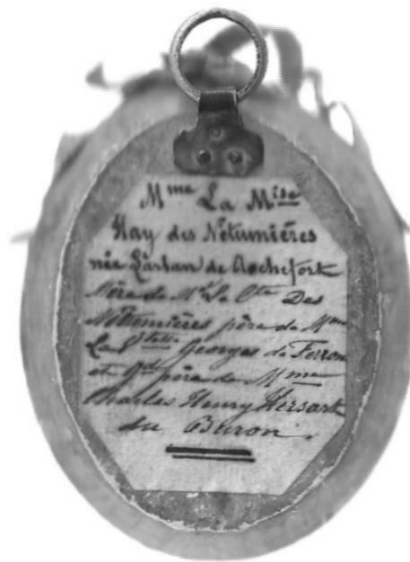 Mme La Mise
Hay des Nétumières
née Larlan de Rochefort
Mère de Mr Le Cte Des
Nétumières père de Mme
La Vtesse Georges de Ferron
et Gd père de Mme
Charles Henry Hersart
du Buron.